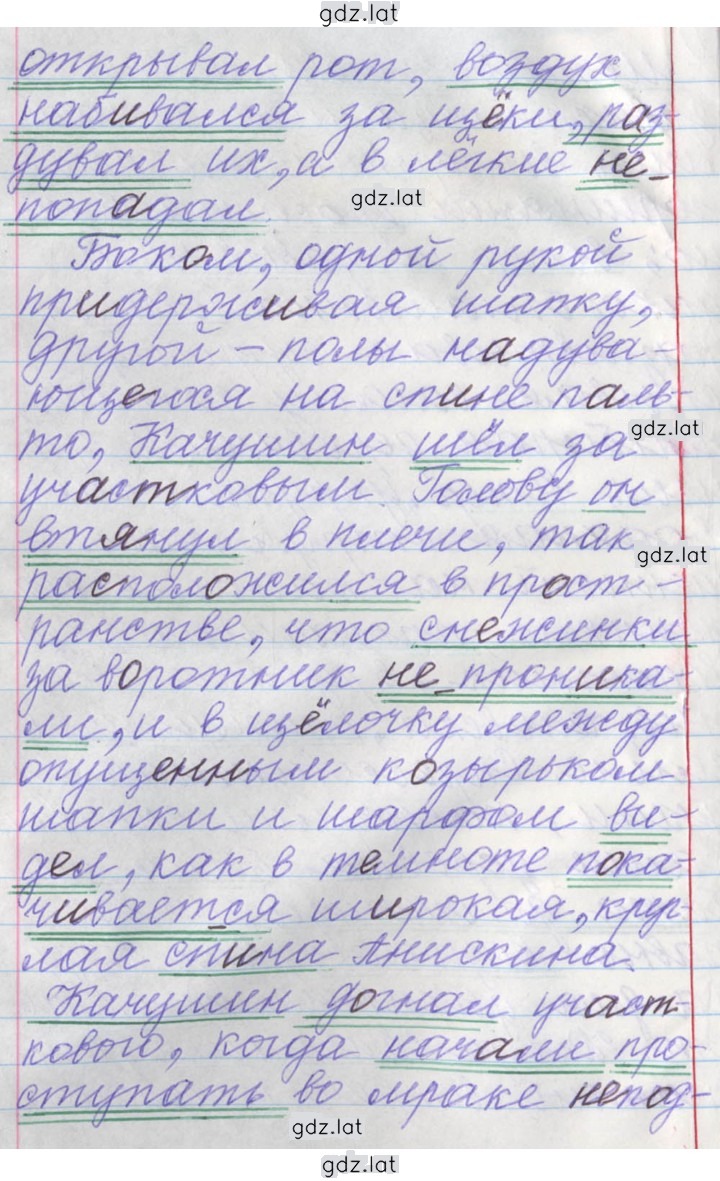 gdz.lat
открывал рот, воздух
набивался за щёки, раз-
дувал их, а в лёгкие не
попадал.
gdz.lat
Боком, одной рукой
придерживая шапку,
другой – полы надува-
ющегося на спине паль-
gdz.lat
то, Качушин шёл за
участковым. Голову он
втянул в плечи, так
gdz.lat
расположился в прост-
ранстве, что снежинки
за воротник не проника-
ли, и в щёлочку между
опущенным козырьком
шапки и шарфом ви-
дел, как в темноте пока-
чивается широкая, круг-
лая спина Анискина.
Качушин догнал участ-
кового, когда начали про-
ступать во мраке непод-
gdz.lat
gdz.lat